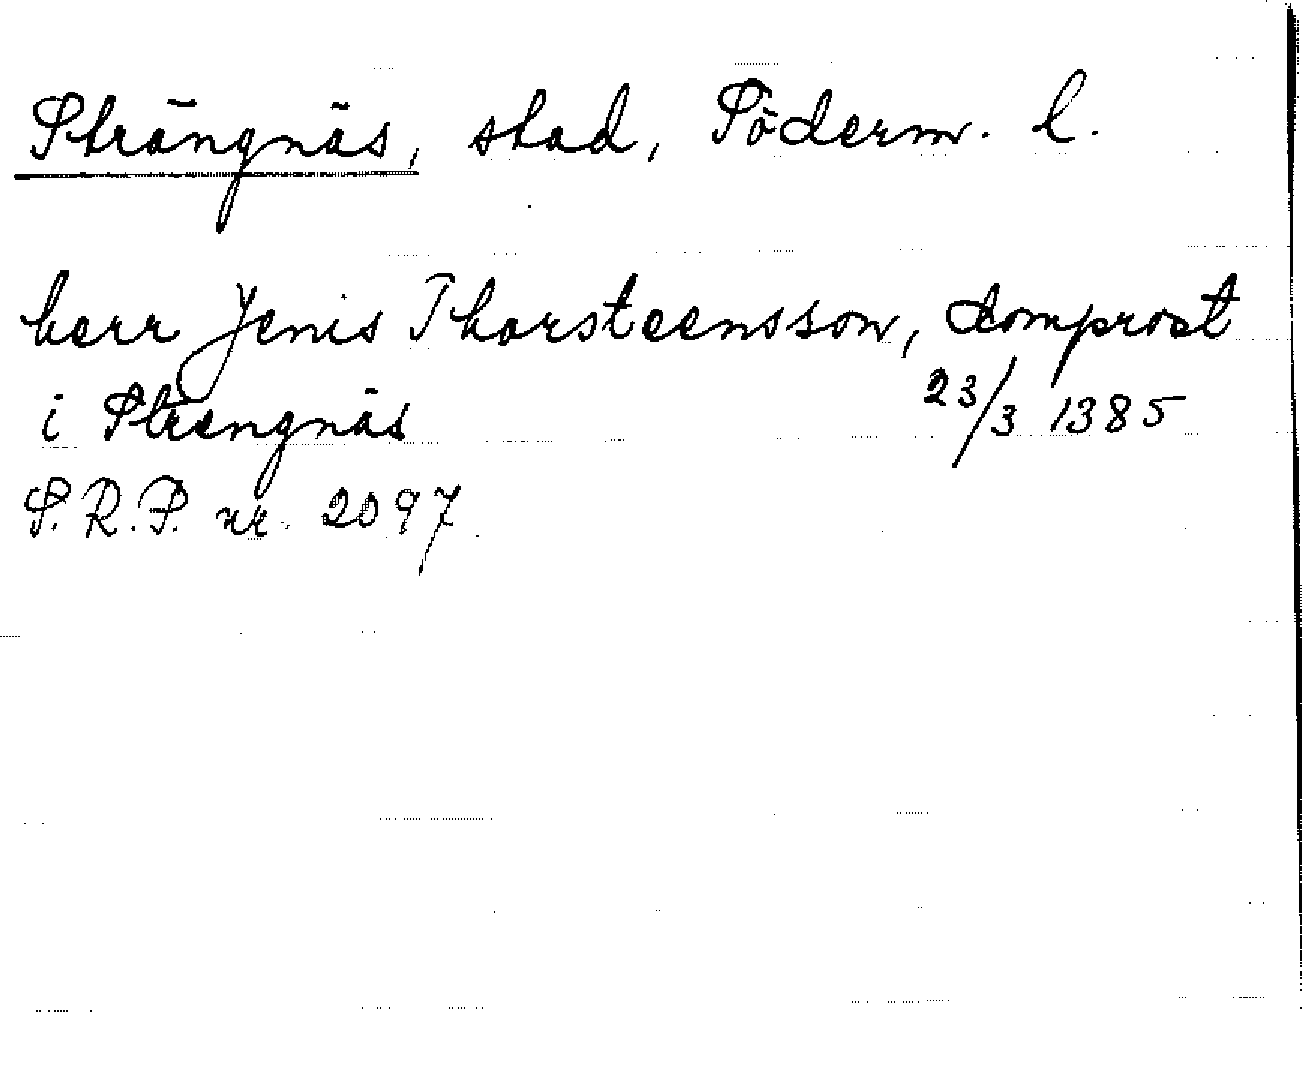 Strängnäs, stad, Söderm. l.
herr Jenis Thorsteensson, domprost
i Strengnäs 23/3 1385
S.R.P. nr. 2097